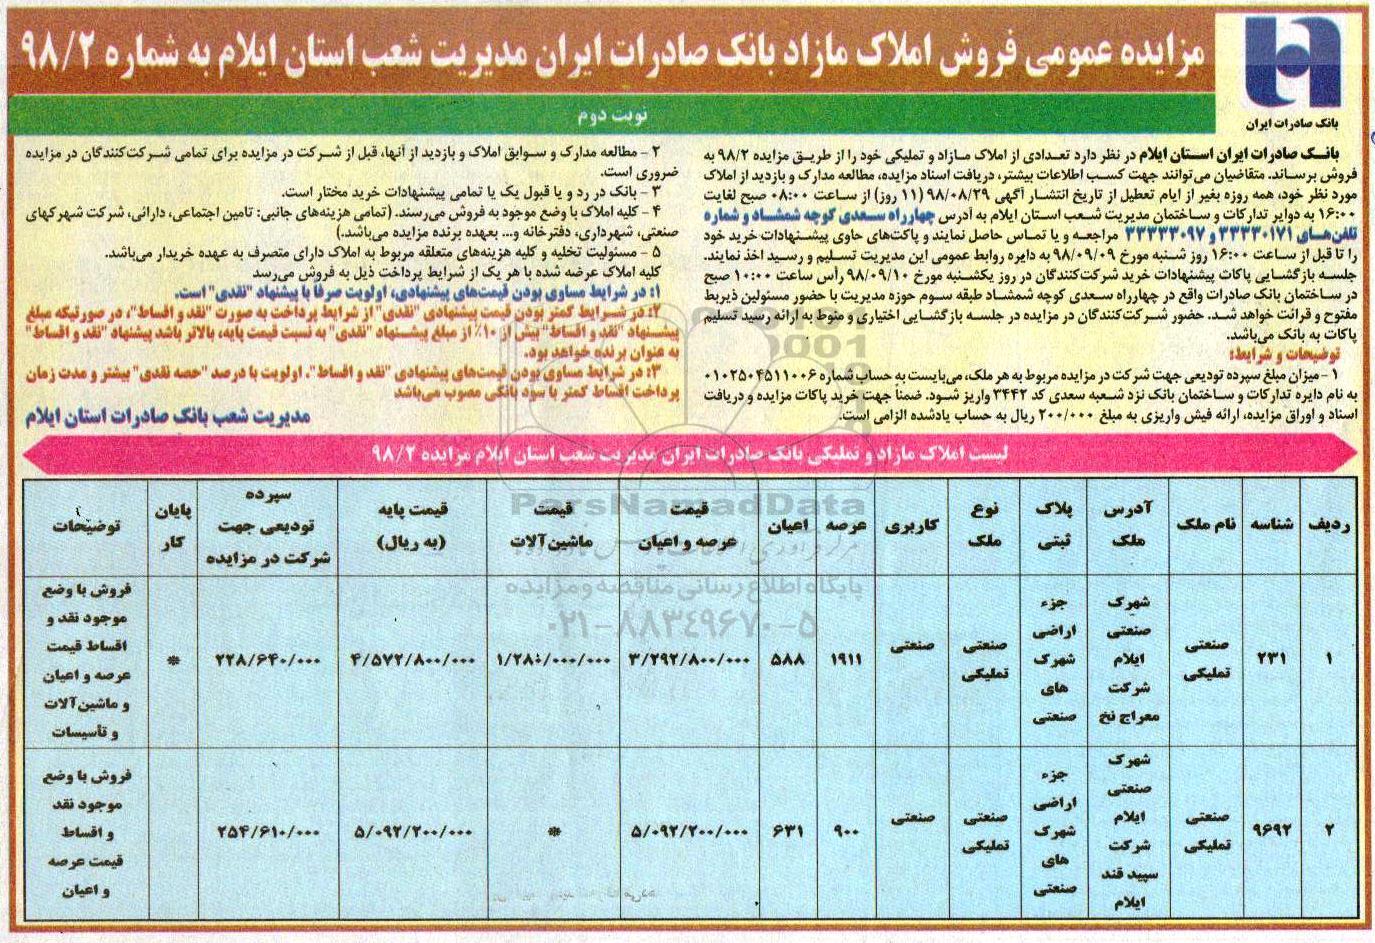 مزایده عمومی فروش املاک مازاد بانک صادرات ایران مدیریت شعب استان ایلام به شماره ۹۸/۲
بانک صادرات ایران
نوبت دوم
بانک صادرات ایران استان ایلام در نظر دارد تعدادی از املاک مازاد و تملیکی خود را از طریق مزایده ۹۸/۲ به
فروش برساند. متقاضیان می‌توانند جهت کسب اطلاعات بیشتر، دریافت اسناد مزایده، مطالعه مدارک و بازدید از املاک
مورد نظر خود، همه روزه بغیر از ایام تعطیل از تاریخ انتشار آگهی ۹۸/۰۸/۲۹ (۱۱ روز) از ساعت ۰۸:۰۰ صبح لغایت
۱۶:۰۰ به دوایر تدارکات و ساختمان مدیریت شعب استان ایلام به آدرس چهارراه سعدی کوچه شمشاد و شماره
تلفن‌های ۳۳۳۳۰۱۷۱ و ۳۳۳۳۳۰۹۷ مراجعه و یا تماس حاصل نمایند و پاکت‌های حاوی پیشنهادات خرید خود
را تا قبل از ساعت ۱۶:۰۰ روز شنبه مورخ ۹۸/۰۹/۰۹ به دایره روابط عمومی این مدیریت تسلیم و رسید اخذ نمایند.
جلسه بازگشایی پاکات پیشنهادات خرید شرکت‌کنندگان در روز یکشنبه مورخ ۹۸/۰۹/۱۰ رأس ساعت ۱۰:۰۰ صبح
در ساختمان بانک صادرات واقع در چهارراه سعدی کوچه شمشاد طبقه سوم حوزه مدیریت با حضور مسئولین ذیربط
مفتوح و قرائت خواهد شد. حضور شرکت‌کنندگان در مزایده در جلسه بازگشایی اختیاری و منوط به ارائه رسید تسلیم
پاکات به بانک می‌باشد.
توضیحات و شرایط:
۱ – میزان مبلغ سپرده تودیعی جهت شرکت در مزایده مربوط به هر ملک، می‌بایست به حساب شماره ۰۱۰۲۵۰۴۵۱۱۰۰۶
به نام دایره تدارکات و ساختمان بانک نزد شعبه سعدی کد ۳۴۴۲ واریز شود. ضمناً جهت خرید پاکات مزایده و دریافت
اسناد و اوراق مزایده، ارائه فیش واریزی به مبلغ ۲۰۰/۰۰۰ ریال به حساب یادشده الزامی است.
۲ – مطالعه مدارک و سوابق املاک و بازدید از آنها، قبل از شرکت در مزایده برای تمامی شرکت‌کنندگان در مزایده
ضروری است.
۳ – بانک در رد و یا قبول یک یا تمامی پیشنهادات خرید مختار است.
۴ – کلیه املاک با وضع موجود به فروش می‌رسند. (تمامی هزینه‌های جانبی: تامین اجتماعی، دارائی، شرکت شهرکهای
صنعتی، شهرداری، دفترخانه و... بعهده برنده مزایده می‌باشد.)
۵ – مسئولیت تخلیه و کلیه هزینه‌های متعلقه مربوط به املاک دارای متصرف به عهده خریدار می‌باشد.
کلیه املاک عرضه شده با هر یک از شرایط پرداخت ذیل به فروش می‌رسد
۱: در شرایط مساوی بودن قیمت‌های پیشنهادی، اولویت صرفاً با پیشنهاد "نقدی" است.
۲: در شرایط کمتر بودن قیمت پیشنهادی "نقدی" از شرایط پرداخت به صورت "نقد و اقساط"، در صورتیکه مبلغ
پیشنهاد "نقد و اقساط" بیش از ۱۰٪ از مبلغ پیشنهاد "نقدی" به نسبت قیمت پایه، بالاتر باشد پیشنهاد "نقد و اقساط"
به عنوان برنده خواهد بود.
۳: در شرایط مساوی بودن قیمت‌های پیشنهادی "نقد و اقساط". اولویت با درصد "حصه نقدی" بیشتر و مدت زمان
پرداخت اقساط کمتر با سود بانکی مصوب می‌باشد
مدیریت شعب بانک صادرات استان ایلام
لیست املاک مازاد و تملیکی بانک صادرات ایران مدیریت شعب استان ایلام مزایده ۹۸/۲
ParsNamadData
پایگاه اطلاع رسانی مناقصه و مزایده
۰۲۱-۸۸۳۴۹۶۷۰-۵
ردیف شناسه نام ملک آدرس ملک پلاک ثبتی نوع ملک کاربری عرصه اعیان قیمت عرصه و اعیان قیمت ماشین‌آلات قیمت پایه (به ریال) سپرده تودیعی جهت شرکت در مزایده پایان کار توضیحات
۱ ۲۳۱ صنعتی تملیکی شهرک صنعتی ایلام شرکت معراج نخ جزء اراضی شهرک های صنعتی صنعتی تملیکی صنعتی ۱۹۱۱ ۵۸۸ ۳/۲۹۲/۸۰۰/۰۰۰ ۱/۲۸۰/۰۰۰/۰۰۰ ۴/۵۷۲/۸۰۰/۰۰۰ ۲۲۸/۶۴۰/۰۰۰ * فروش با وضع موجود نقد و اقساط قیمت عرصه و اعیان و ماشین‌آلات و تأسیسات
۲ ۹۶۹۲ صنعتی تملیکی شهرک صنعتی ایلام شرکت سپید قند ایلام جزء اراضی شهرک های صنعتی صنعتی تملیکی صنعتی ۹۰۰ ۶۳۱ ۵/۰۹۲/۲۰۰/۰۰۰ * ۵/۰۹۲/۲۰۰/۰۰۰ ۲۵۴/۶۱۰/۰۰۰ فروش با وضع موجود نقد و اقساط قیمت عرصه و اعیان